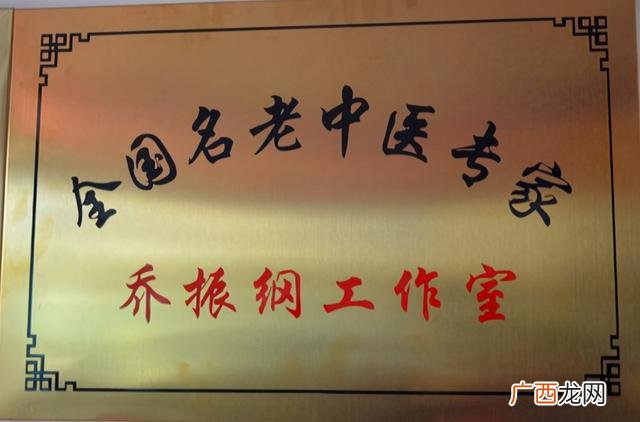 全国名老中医专家
乔振纲工作室
广西龙网